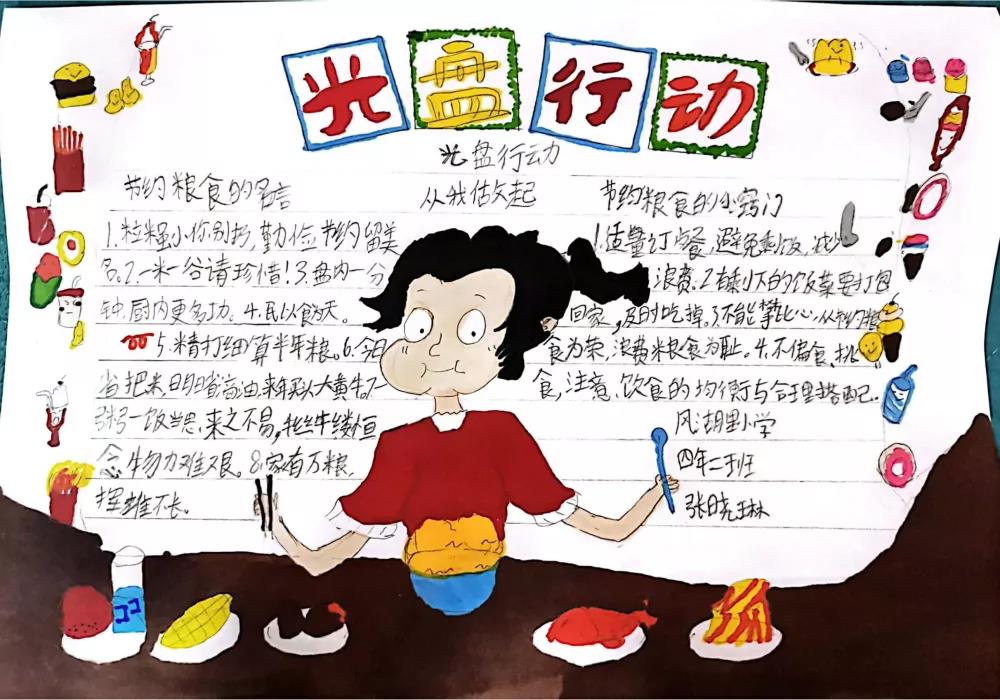 光盘行动
光盘行动
从我做起
节约粮食的名言
1.粒粮小你别抄,勤俭节约留美
名。2.一米一谷请珍惜!3.盘内一分
钟.厨内更多功。4.民以食为天。
5.精打细算半年粮。6.今日
省把米,日日省滴油,来年买大黄牛.7.
粥一饭当思,来之不易,半丝半缕恒
念物力难艰。8.家有万粮,
挥雄不长。
节约粮食的小窍门
1.适量订餐,避免剩饭,减少
浪费.2.剩下的饭菜要打包
回家,及时吃掉。3.不能攀比心.以节约粮
食为荣,浪费粮食为耻。4.不偏食,挑
食,注意饮食的均衡与合理搭配.
凤湖里小学
四年二班
张晓琳